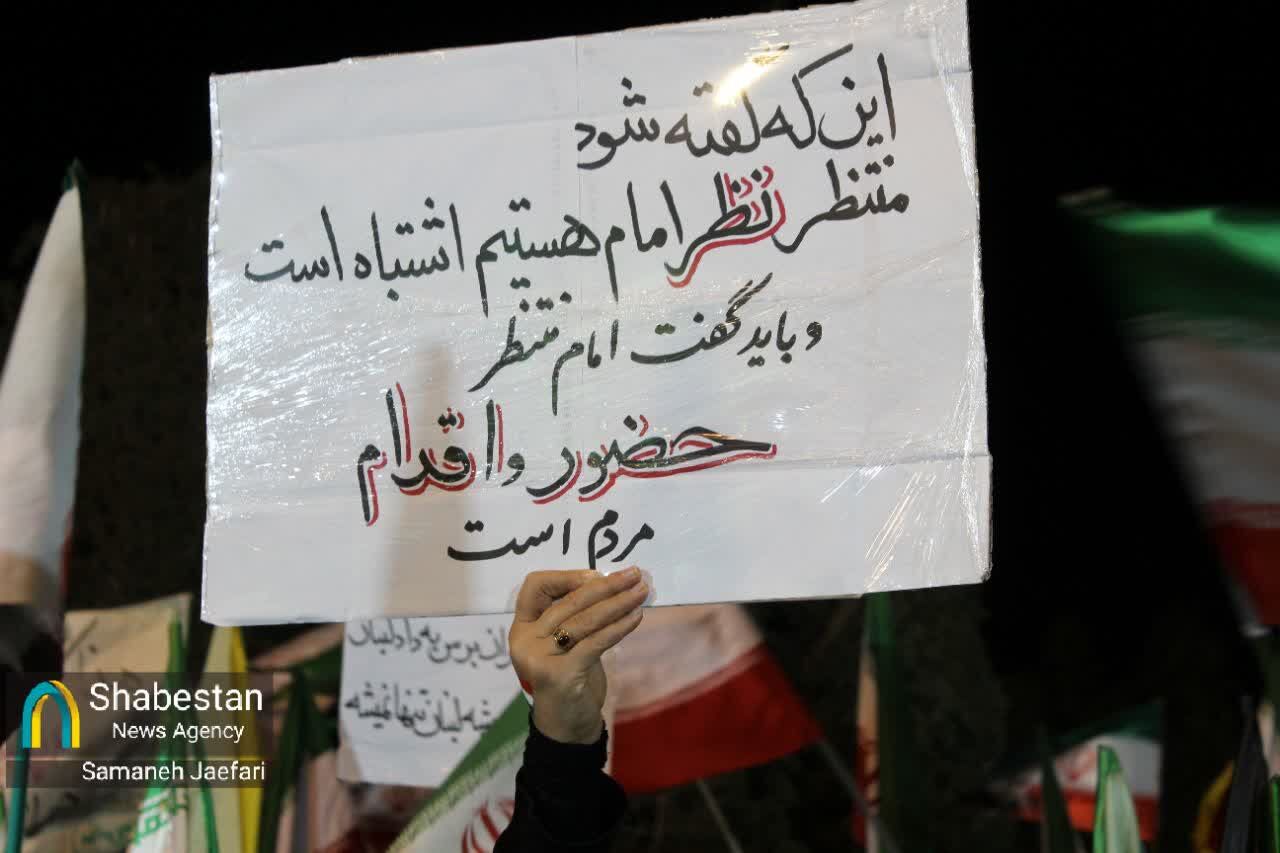 این که گفته شود
منتظر نظر امام هستیم اشتباه است
و باید گفت امام منتظر
حضور و اقدام
مردم است
لبنان تنها نمیشه
Shabestan
News Agency
Samaneh Jaefari